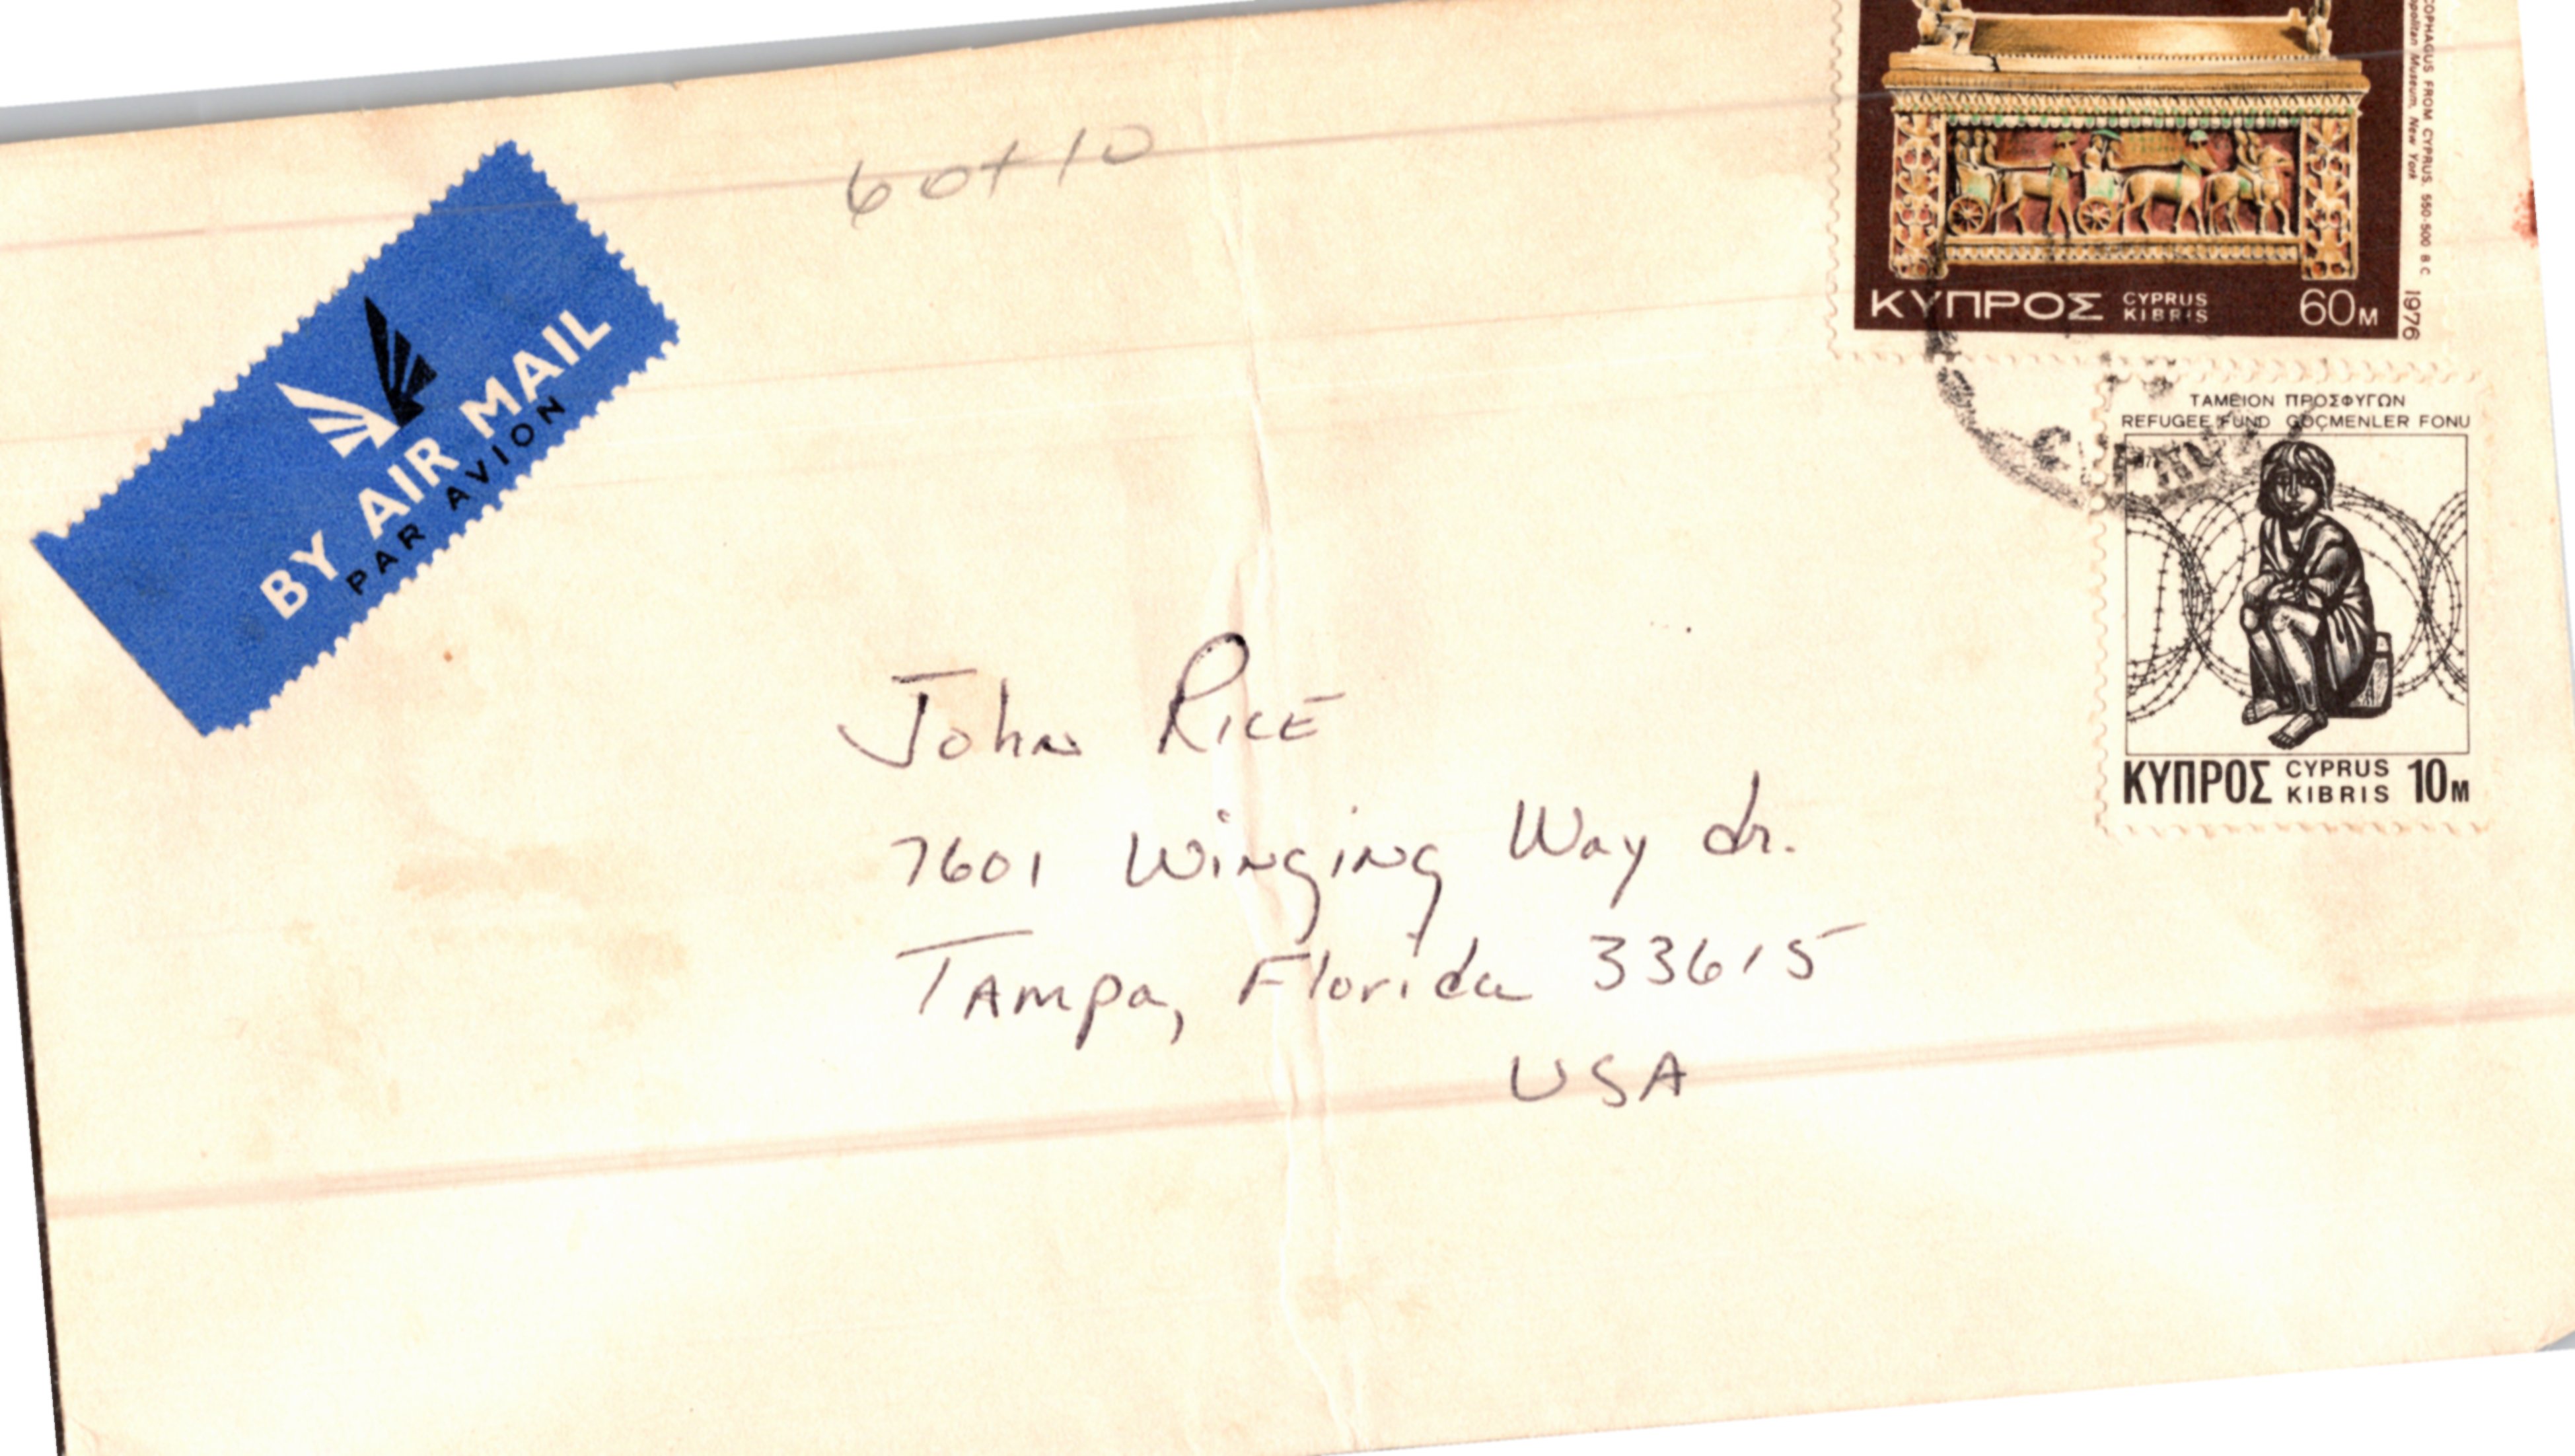 60+10
BY AIR MAIL
PAR AVION
COPHAGUS FROM CYPRUS. 550-500 B.C
Museum, New York
1976
ΚΥΠΡΟΣ CYPRUS KIBRIS 60M
ΤΑΜΕΙΟΝ ΠΡΟΣΦΥΓΩΝ
REFUGEE FUND GÖÇMENLER FONU
ΚΥΠΡΟΣ CYPRUS KIBRIS 10M
John RICE
7601 Winging Way dr.
TAmpa, Florida 33615
USA